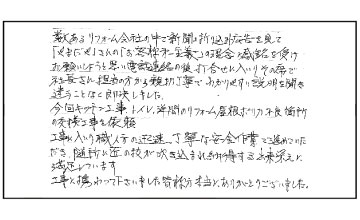 数あるリフォーム会社の中で新聞の折り込み広告を見て
「やまだや」さんの「お客様第一主義」の理念に感銘を受け
お願いしようと思い電話連絡の後、打合せに入りその席で
社長さん、担当の方から親切丁寧でわかりやすい説明を聞き
迷うことなく即決しました。
今回キッチン工事、トイレ、洋間のリフォーム屋根、ポリカ不良箇所
の交換工事を依頼
工事に入り職人方の迅速、丁寧な安全作業で進めていた
だき、随所に匠の技が吹き込まれ納得する出来栄えと
満足しています
工事に携わって下さいました皆様方本当にありがとうございました。